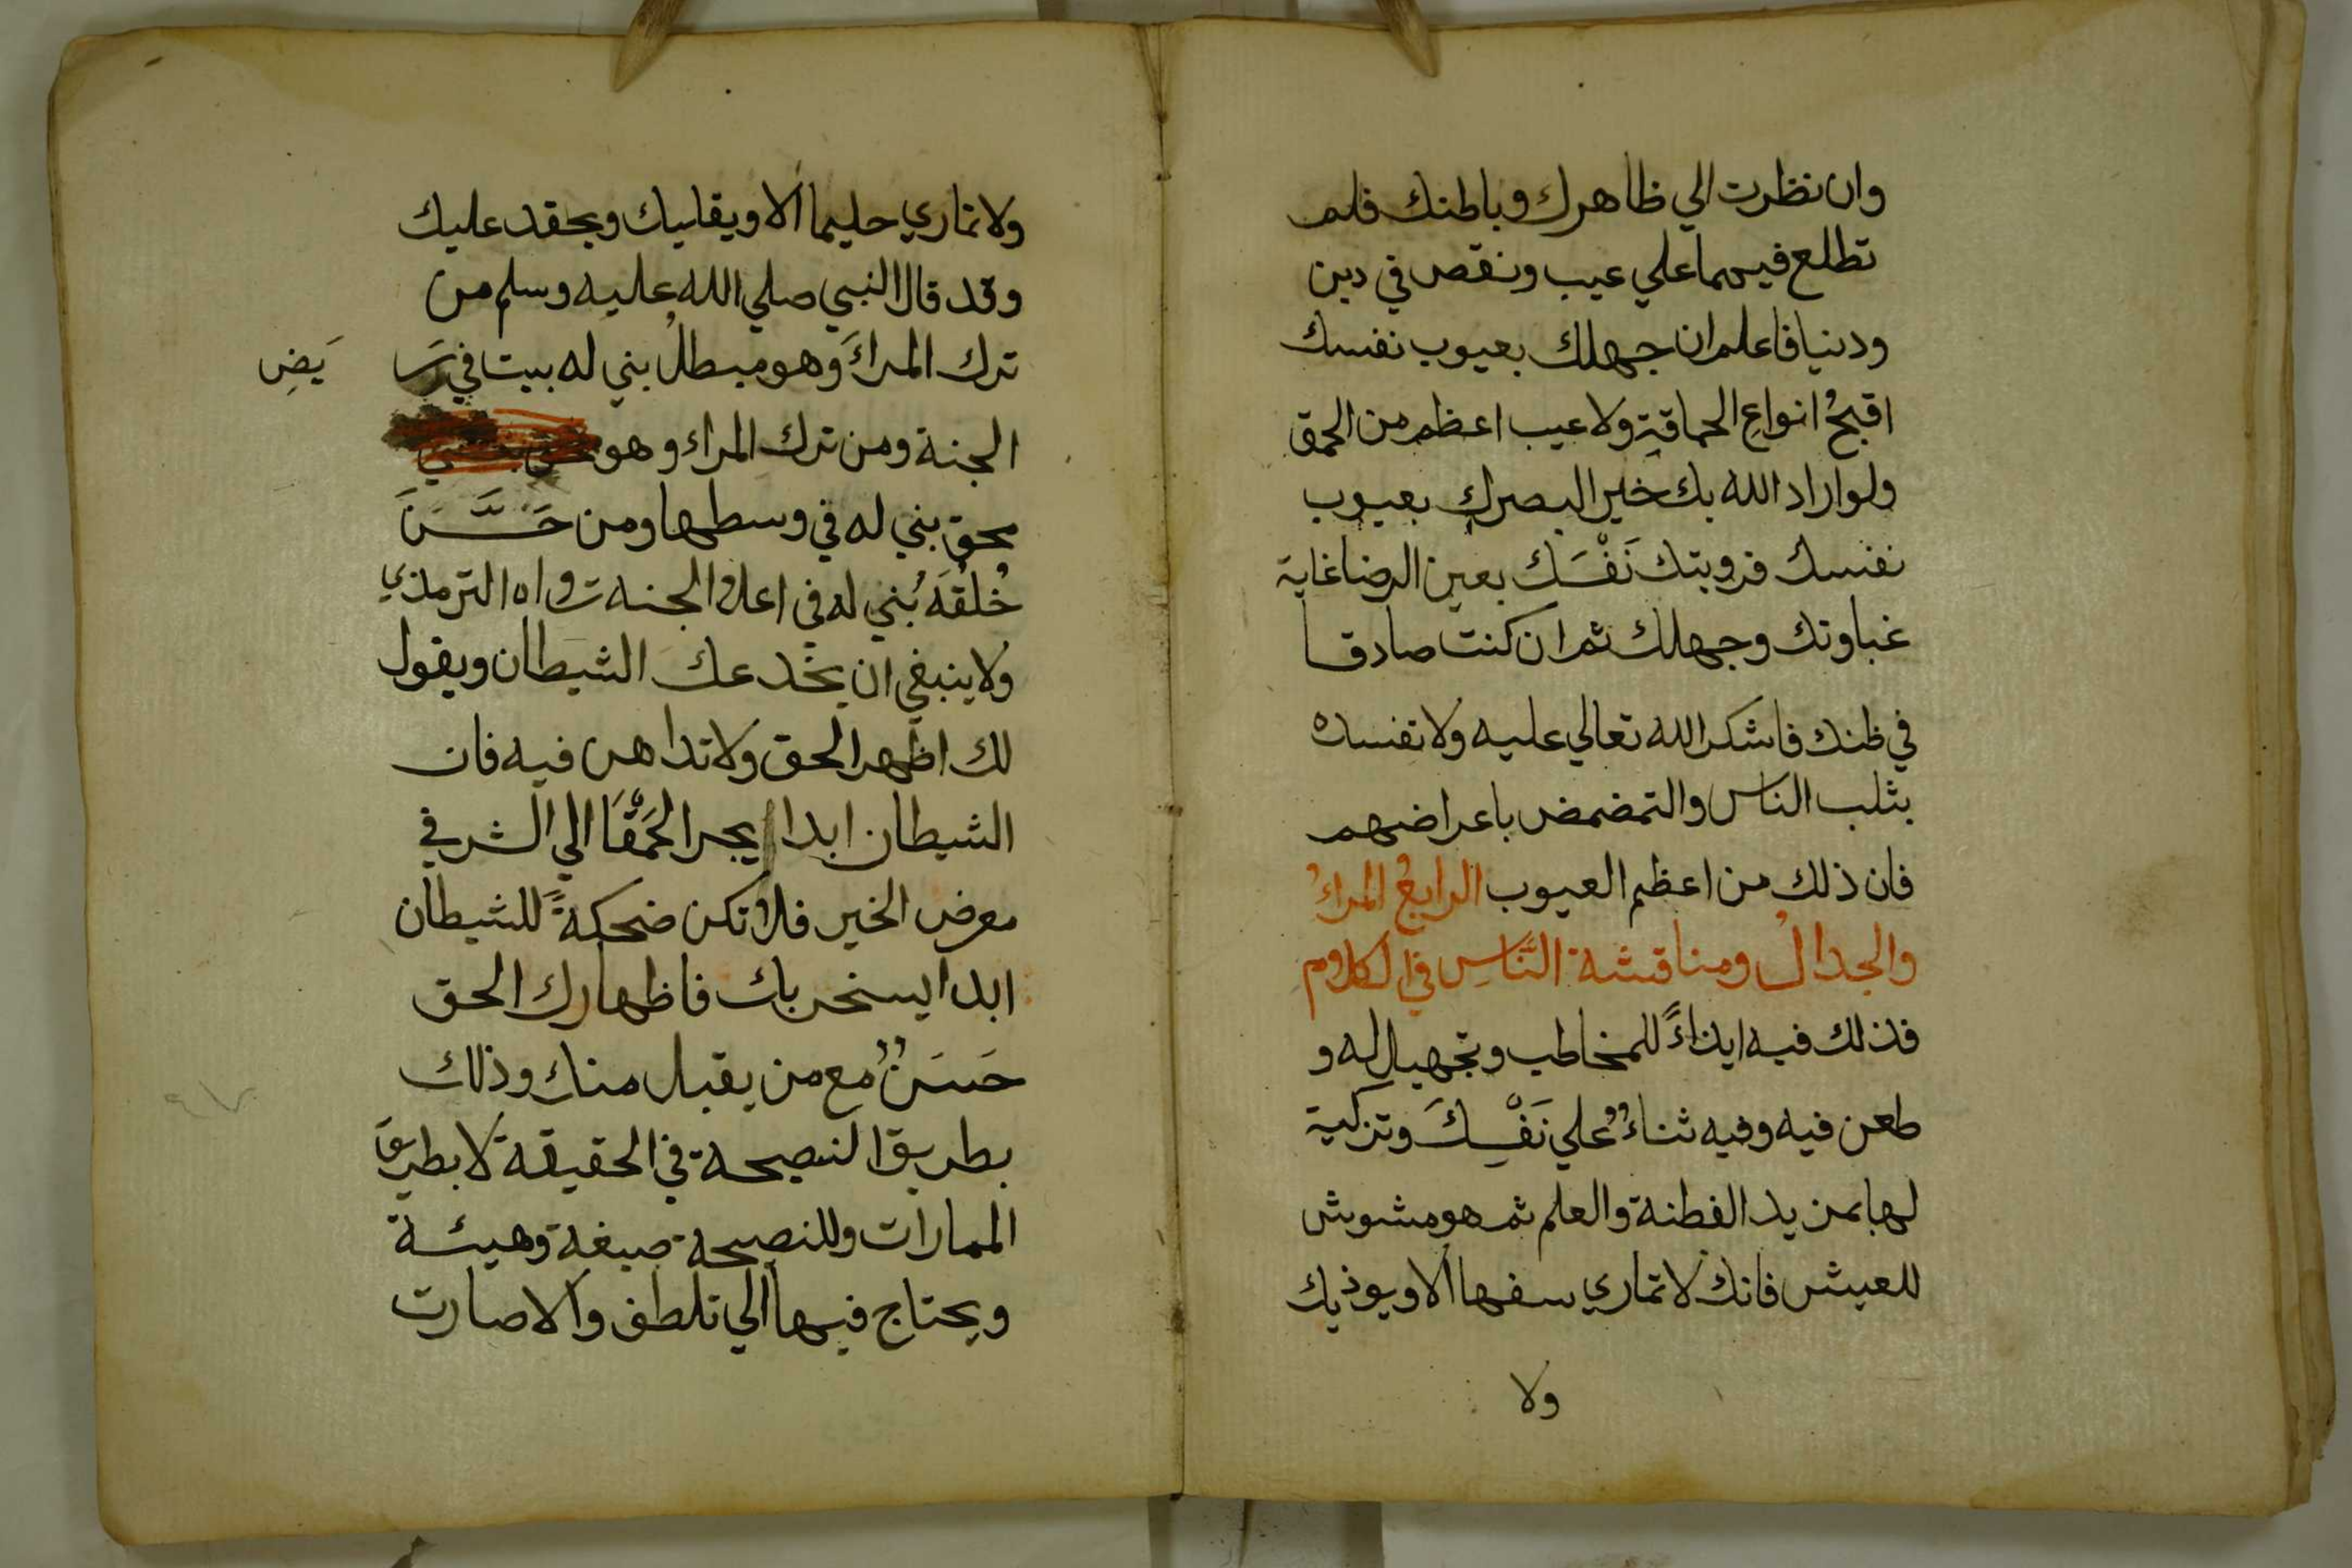 وان نظرت الي ظاهرك وباطنك فلم
تطلع فيهما علي عيب ونقص في دين
ودنيا فاعلم ان جهلك بعيوب نفسك
اقبحُ انواعِ الحماقةِ ولا عيب اعظم من الحمق
ولو اراد الله بك خيرا لبصرك بعيوب
نفسك فرويتك نَفْسَك بعين الرضا غاية
غباوتك وجهلك ثم ان كنت صادقا
في ظنك فاشكر الله تعالي عليه ولا تفسده
بثلب الناس والتمضمض باعراضهم
فان ذلك من اعظم العيوب الرابعُ المراءُ
والجدالُ ومناقشة النَّاسِ في الكلام
فذلك فيه ايذاءً للمخاطب وتجهيل له و
طعن فيه وفيه ثناءٌ علي نَفْسِكَ وتزكية
لها بمزيد الفطنة والعلم ثم هو مشوش
للعيش فانك لا تماري سفيها الا ويوذيك
ولا
ولا تماري حليما الا ويقليك ويحقد عليك
وقد قال النبي صلي الله عليه وسلم من
ترك المراءَ وهو مبطلُ بني له بيت في رَ
يَضِ
الجنة ومن ترك المراء وهو
محق بني له في وسطها ومن حَسَّنَ
خُلقَهُ بُني له في اعلا الجنة رواه الترمذي
ولا ينبغي ان يخدعك الشيطان ويقول
لك اظهر الحق ولا تداهن فيه فان
الشيطان ابدا يجر الحَمْقَا الي الشر في
معرض الخير فلا تكن ضحكةً للشيطان
ابدا يسخر بك فاظهارك الحق
حَسَنٌ مع من يقبل منك وذلك
بطريق النصيحة في الحقيقة لا بطريق
الممارات وللنصيحة صيغة وهيئة
ويحتاج فيها الي تلطف والا صارت